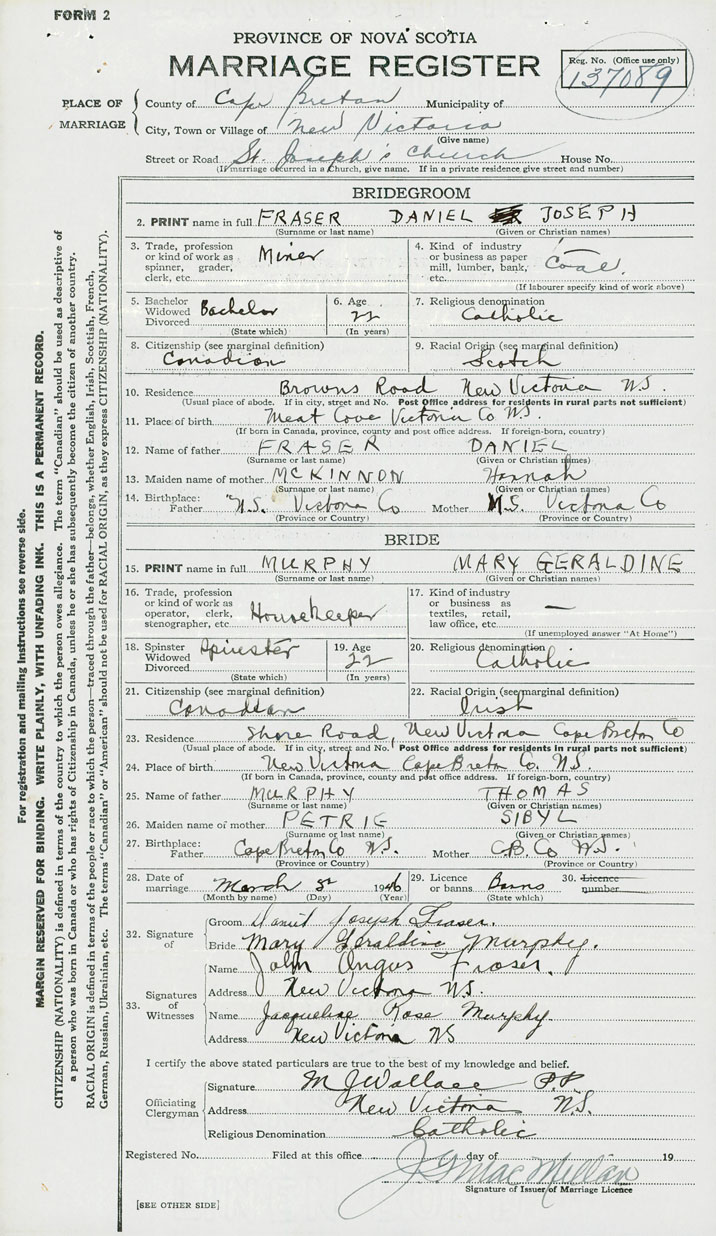 FORM 2
PROVINCE OF NOVA SCOTIA
MARRIAGE REGISTER
Reg. No. (Office use only)
137089
PLACE OF MARRIAGE
County of Cape Breton Municipality of
City, Town or Village of New Victoria
(Give name)
Street or Road St. Joseph's Church House No.
(If marriage occurred in a Church, give name. If in a private residence give street and number)
BRIDEGROOM
2. PRINT name in full FRASER DANIEL JOSEPH
(Surname or last name) (Given or Christian names)
3. Trade, profession or kind of work as spinner, grader, clerk, etc. Miner
4. Kind of industry or business as paper mill, lumber, bank, etc. Coal.
(If labourer specify kind of work above)
5. Bachelor Widowed Divorced Bachelor
(State which)
6. Age 22
(In years)
7. Religious denomination
Catholic
8. Citizenship (see marginal definition)
Canadian
9. Racial Origin (see marginal definition)
Scotch
10. Residence Browns Road New Victoria N.S.
(Usual place of abode. If in city, street and No. Post Office address for residents in rural parts not sufficient)
11. Place of birth Meat Cove Victoria Co N.S.
(If born in Canada, province, county and post office address. If foreign-born, country)
12. Name of father FRASER DANIEL
(Surname or last name) (Given or Christian names)
13. Maiden name of mother MCKINNON Hannah
(Surname or last name) (Given or Christian names)
14. Birthplace: Father N.S. Victoria Co Mother N.S. Victoria Co
(Province or Country) (Province or Country)
BRIDE
15. PRINT name in full MURPHY MARY GERALDINE
(Surname or last name) (Given or Christian names)
16. Trade, profession or kind of work as operator, clerk, stenographer, etc. Housekeeper
17. Kind of industry or business as textiles, retail, law office, etc. —
(If unemployed answer "At Home")
18. Spinster Widowed Divorced Spinster
(State which)
19. Age 22
(In years)
20. Religious denomination
Catholic
21. Citizenship (see marginal definition)
Canadian
22. Racial Origin (see marginal definition)
Irish
23. Residence Shore Road, New Victoria Cape Breton Co
(Usual place of abode. If in city, street and No. Post Office address for residents in rural parts not sufficient)
24. Place of birth New Victoria Cape Breton Co. N.S.
(If born in Canada, province, county and post office address. If foreign-born, country)
25. Name of father MURPHY THOMAS
(Surname or last name) (Given or Christian names)
26. Maiden name of mother PETRIE SIBYL
(Surname or last name) (Given or Christian names)
27. Birthplace: Father Cape Breton Co N.S. Mother C.B. Co N.S.
(Province or Country) (Province or Country)
28. Date of marriage March 1946
(Month by name) (Day) (Year)
29. Licence or banns Banns
(State which)
30. Licence number
32. Signature of
Groom Daniel Joseph Fraser.
Bride Mary Geraldine Murphy.
33. Signatures of Witnesses
Name John Angus Fraser.
Address New Victoria N.S.
Name Jacqueline Rose Murphy.
Address New Victoria NS
I certify the above stated particulars are true to the best of my knowledge and belief.
Officiating Clergyman
Signature M J Wallace P.P.
Address New Victoria N.S.
Religious Denomination Catholic
Registered No. Filed at this office day of 19
J G MacMillan
Signature of Issuer of Marriage Licence
[SEE OTHER SIDE]
For registration and mailing instructions see reverse side.
MARGIN RESERVED FOR BINDING. WRITE PLAINLY, WITH UNFADING INK. THIS IS A PERMANENT RECORD.
CITIZENSHIP (NATIONALITY) is defined in terms of the country to which the person owes allegiance. The term "Canadian" should be used as descriptive of
a person who was born in Canada or who has rights of Citizenship in Canada, unless he or she has subsequently become the citizen of another country.
RACIAL ORIGIN is defined in terms of the people or race to which the person—traced through the father—belongs, whether English, Irish, Scottish, French,
German, Russian, Ukrainian, etc. The terms "Canadian" or "American" should not be used for RACIAL ORIGIN, as they express CITIZENSHIP (NATIONALITY).